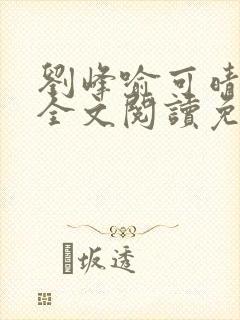 劉峰喻可晴
全文閱讀免
坂透